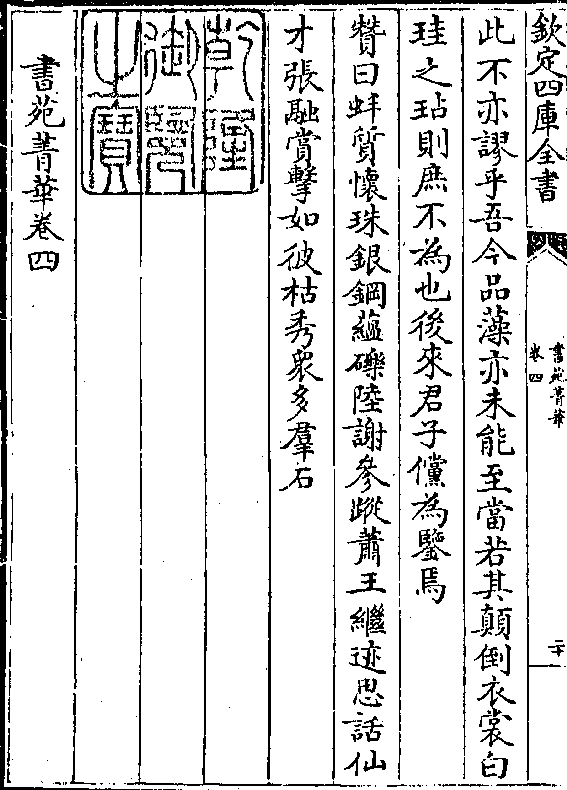 欽定四庫全書
書苑菁華
卷四
二十
此不亦謬乎吾今品藻亦未能至當若其顛倒衣裳白
珪之玷則庶不為也後來君子儻為鑒焉
贊曰蚌質懷珠銀鋼蘊礫陸謝參蹤蕭王繼迹思話仙
才張融賞擊如彼枯秀衆多羣石
乾隆御覽之寶
書苑菁華卷四